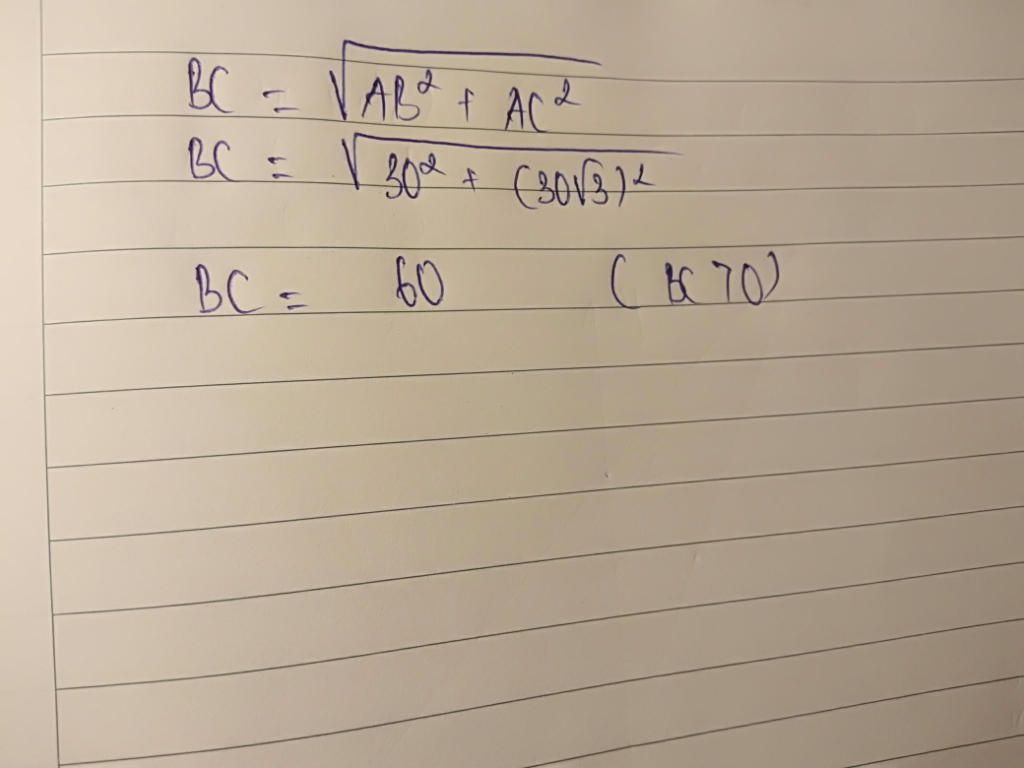 BC = √AB² + AC²
BC = √30² + (30√3)²
BC = 60 (BC > 0)